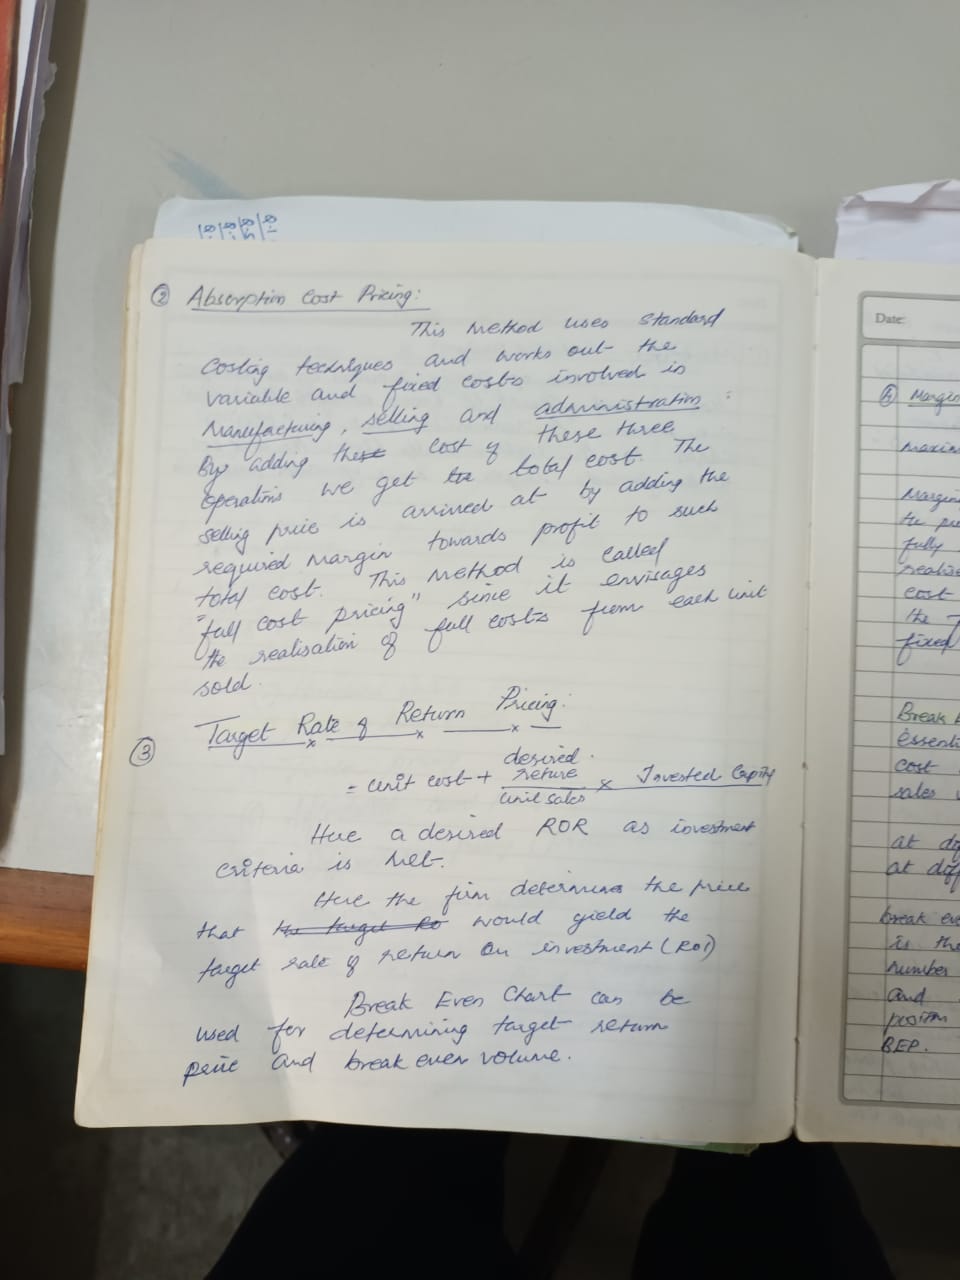 ② Absorption Cost Pricing:
This Method uses standard
Costing techniques and works out the
variable and fixed costs involved in
Manufacturing, selling and administration
By adding these cost of these three
operations we get the total cost The
selling price is arrived at by adding the
required Margin towards profit to such
total cost. This Method is called
"full cost pricing" since it envisages
the realisation of full costs from each unit
sold.
③ Target Rate of Return Pricing:
= unit cost + desired return / unit sales × Invested Capital
Here a desired ROR as investment
criteria is Met.
Here the firm determines the price
that would yield the
target rate of return on investment (ROI)
Break Even Chart can be
used for determining target return
price and break even volume.
Date:
④ Margin
Margin
fully
cost
the
fixed
Break
essenti
cost
sales
at
at
break eve
is the
number
and
BEP.